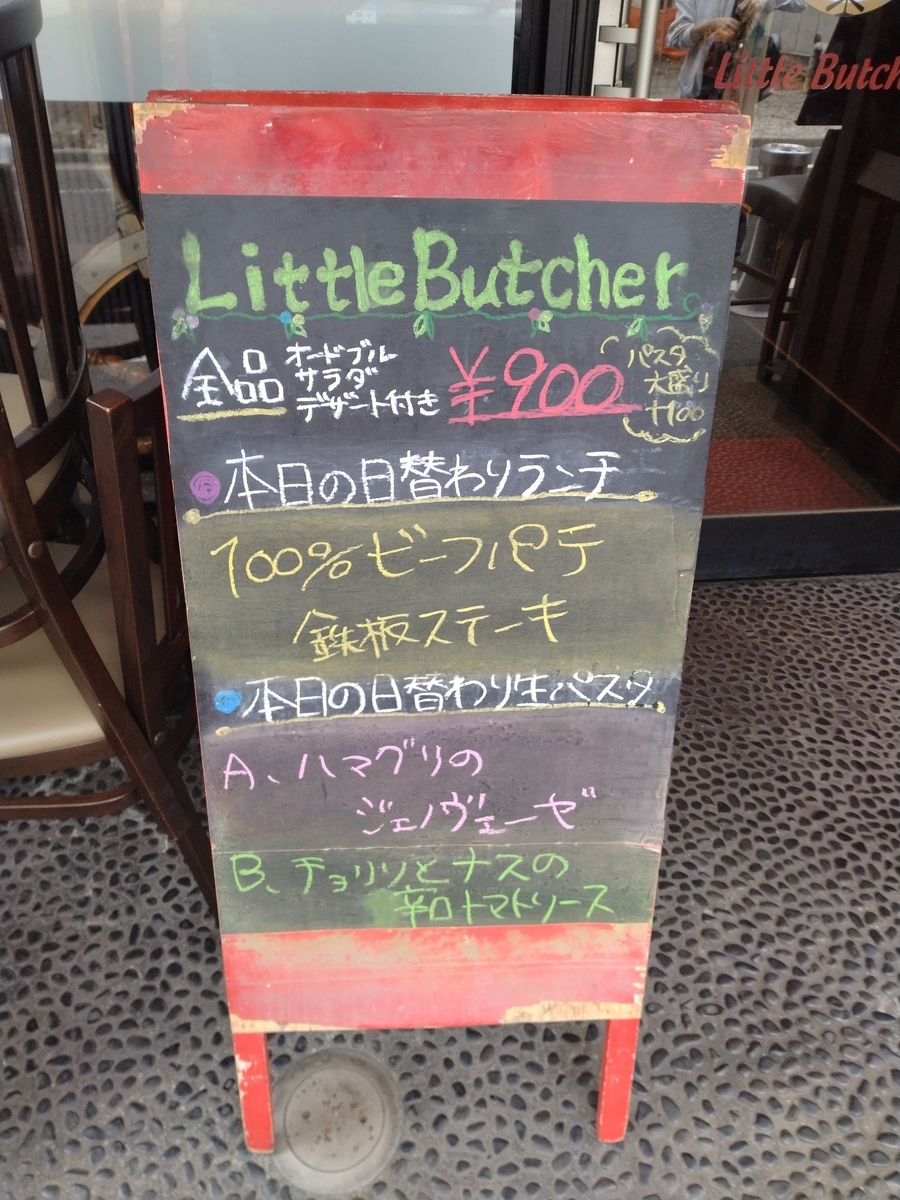 Little Butch
LittleButcher
全品
オードブル
サラダ
デザート付き
¥900
パスタ
大盛り
+100
本日の日替わりランチ
100%ビーフパテ
鉄板ステーキ
本日の日替わり生パスタ
A、ハマグリの
ジェノヴェーゼ
B、チョリソとナスの
辛口トマトソース